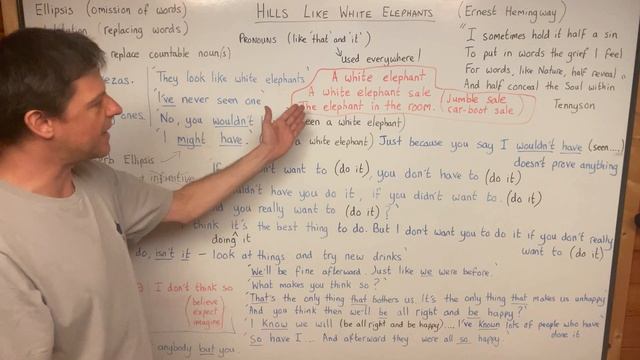 Ellipsis (omission of words)
HILLS LIKE WHITE ELEPHANTS
(Ernest Hemingway)
(replacing words)
PRONOUNS (like 'that' and 'it')
"I sometimes hold it half a sin
replace countable noun/s)
used everywhere!
To put in words the grief I feel
For words, like Nature, half reveal
And half conceal the Soul within
Tennyson
A white elephant
A white elephant sale
The elephant in the room.
(Jumble sale
car-boot sale)
'They look like white elephants'
'I've never seen one'
ones.
No, you wouldn't
a white elephant)
'I might have.'
a white elephant)
Just because you say I wouldn't have (seen....)
doesn't prove anything
Ellipsis
infinitive
want to (do it), you don't have to (do it)
wouldn't have you do it, if you didn't want to. (do it)
you really want to (do it) ?'
think it's the best thing to do. But I don't want you to do it if you don't really
want to (do it)
doing it
do, isn't it - look at things and try new drinks'
'We'll be fine afterward. Just like we were before.'
I don't think so
'What makes you think so?'
believe
expect
imagine
'That's the only thing that bothers us. It's the only thing that makes us unhappy'
'And you think then we'll be all right and be happy?'
'I know we will (be all right and be happy).... I've known lots of people who have
done it
'So have I.... And afterward they were all so happy.'
anybody but you.